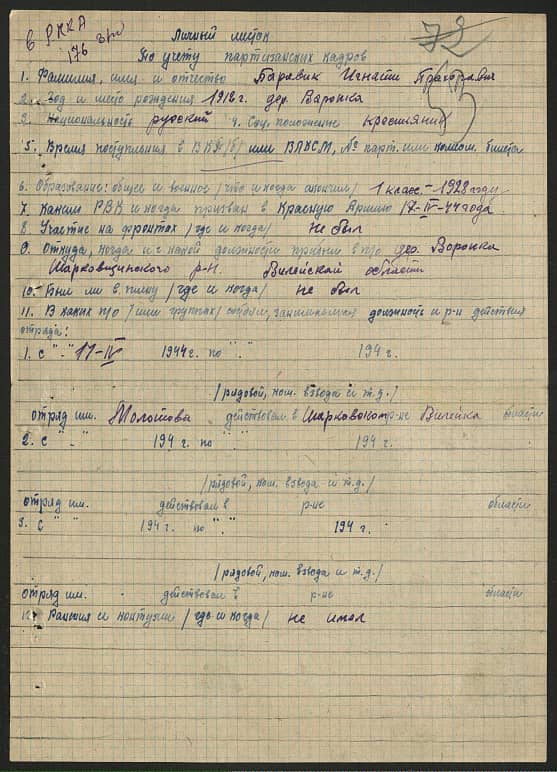 в РККА
72
176
Личный листок
По учету партизанских кадров
1. Фамилия, имя и отчество Паравик Игнати
2. Год и место рождения 1912 г. дер. Варонка
3. Национальность русский 4. Соц. положение кресьянин
5. Время поступления в ВКП(б) или ВЛКСМ, № парт. или комсом. билета
6. Образование: общее и военное /что и когда окончил/ 1 класс. - 1928 году
7. Каким РВК и когда призван в Красную Армию 17-IV-44 года
8. Участие на фронтах /где и когда/ не был
9. Откуда, когда и с какой должности прибыл в п/о дер. Воронка
Шарковщинского р-н. Вилейской области
10. Был ли в плену /где и когда/ не был
11. В каких п/о /или группах/ состоял, занимаемая должность и р-н действия
отряда:
1. с "." 17-IV 1944 г. по "." 194 г.
/рядовой, ком. взвода и т.д./
отряд им. Молотова действовал в р-не Вилейка области
2. с " " 194 г. по " " 194 г.
/рядовой, ком. взвода и т.д./
отряд им. действовал в р-не области
3. с " " 194 г. по "." 194 г.
/рядовой, ком. взвода и т.д./
отряд им. действовал в р-не области
12. Ранения и контузии /где и когда/ не имел